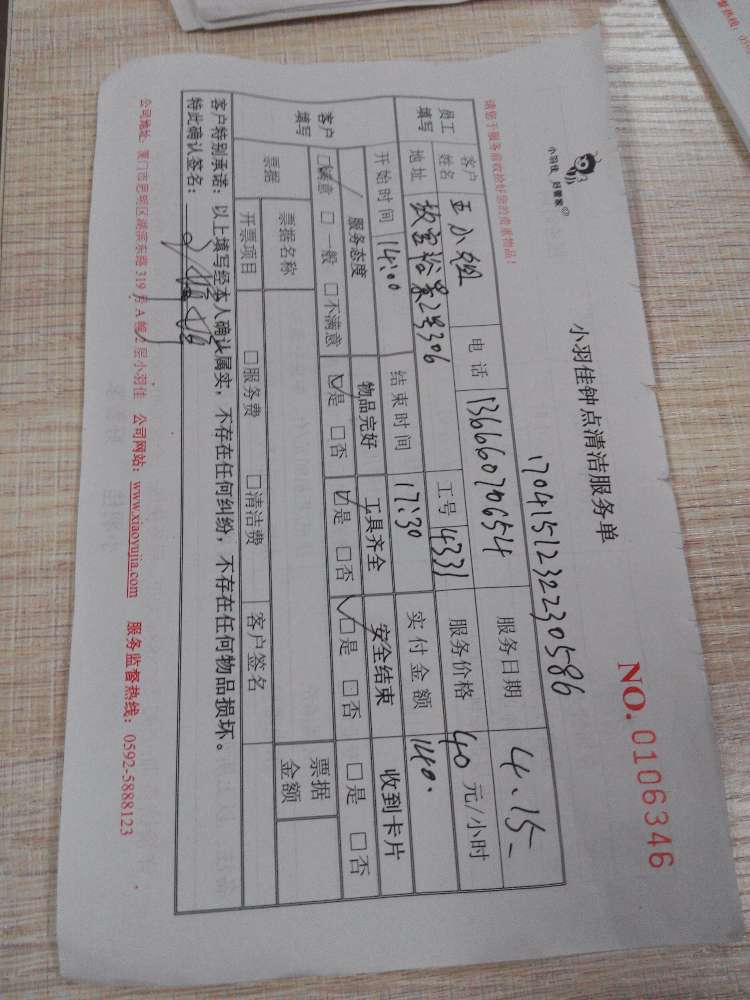 小羽佳 好管家
小羽佳钟点清洁服务单
NO.0106346
1704151232230586
请您于服务前收拾好您的贵重物品!
员工填写 客户姓名 王小姐 电话 13666070654 服务日期 4.15
地址 裕景2号306 工号 4331 服务价格 40 元/小时
开始时间 14:00 结束时间 17:30 实付金额 140.
客户填写 服务态度 物品完好 工具齐全 安全结束 收到卡片
☑满意 □一般 □不满意 ☑是 □否 ☑是 □否 ☑是 □否 □是 □否
票据 票据名称 票据金额
开票项目 □服务费 □清洁费 客户签名
客户特别承诺:以上填写经本人确认属实,不存在任何纠纷,不存在任何物品损坏。
特此确认签名:
公司地址:厦门市思明区湖滨东路 319 号 A 幢 2 层小羽佳 公司网站:www.xiaoyujia.com 服务监督热线:0592-5888123